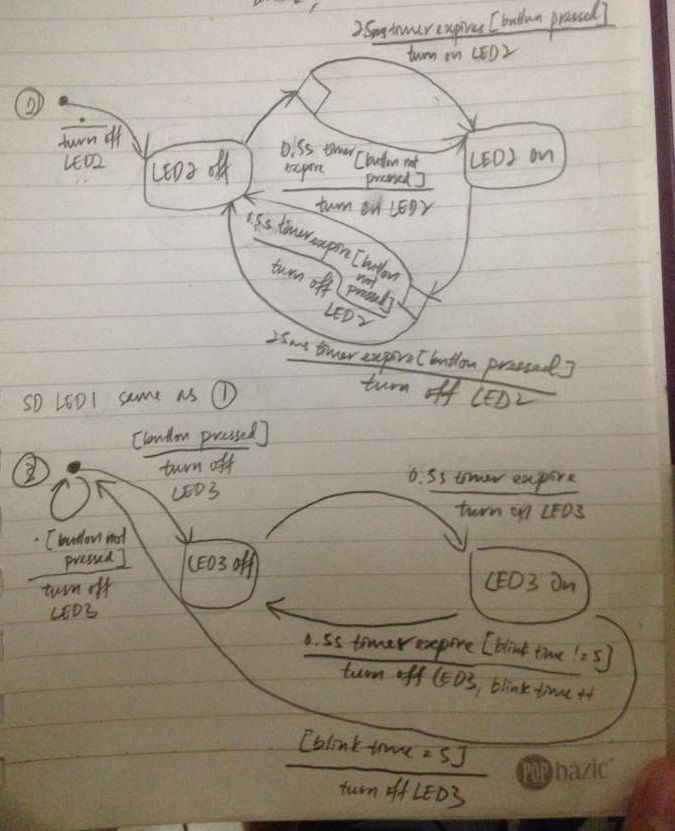 25ms timer expires [button pressed]
turn on LED2
①
turn off
LED2
LED2 off
LED2 on
0.5s timer
expire [button not
pressed]
turn on LED2
0.5s timer expire [button
not
pressed]
turn off
LED2
25ms timer expire [button pressed]
turn off LED2
SD LED1 same as ①
②
[button pressed]
turn off
LED3
[button not
pressed]
turn off
LED3
0.5s timer expire
turn on LED3
LED3 off
LED3 On
0.5s timer expire [blink time != 5]
turn off LED3, blink time ++
[blink time = 5]
turn off LED3
POP bazic